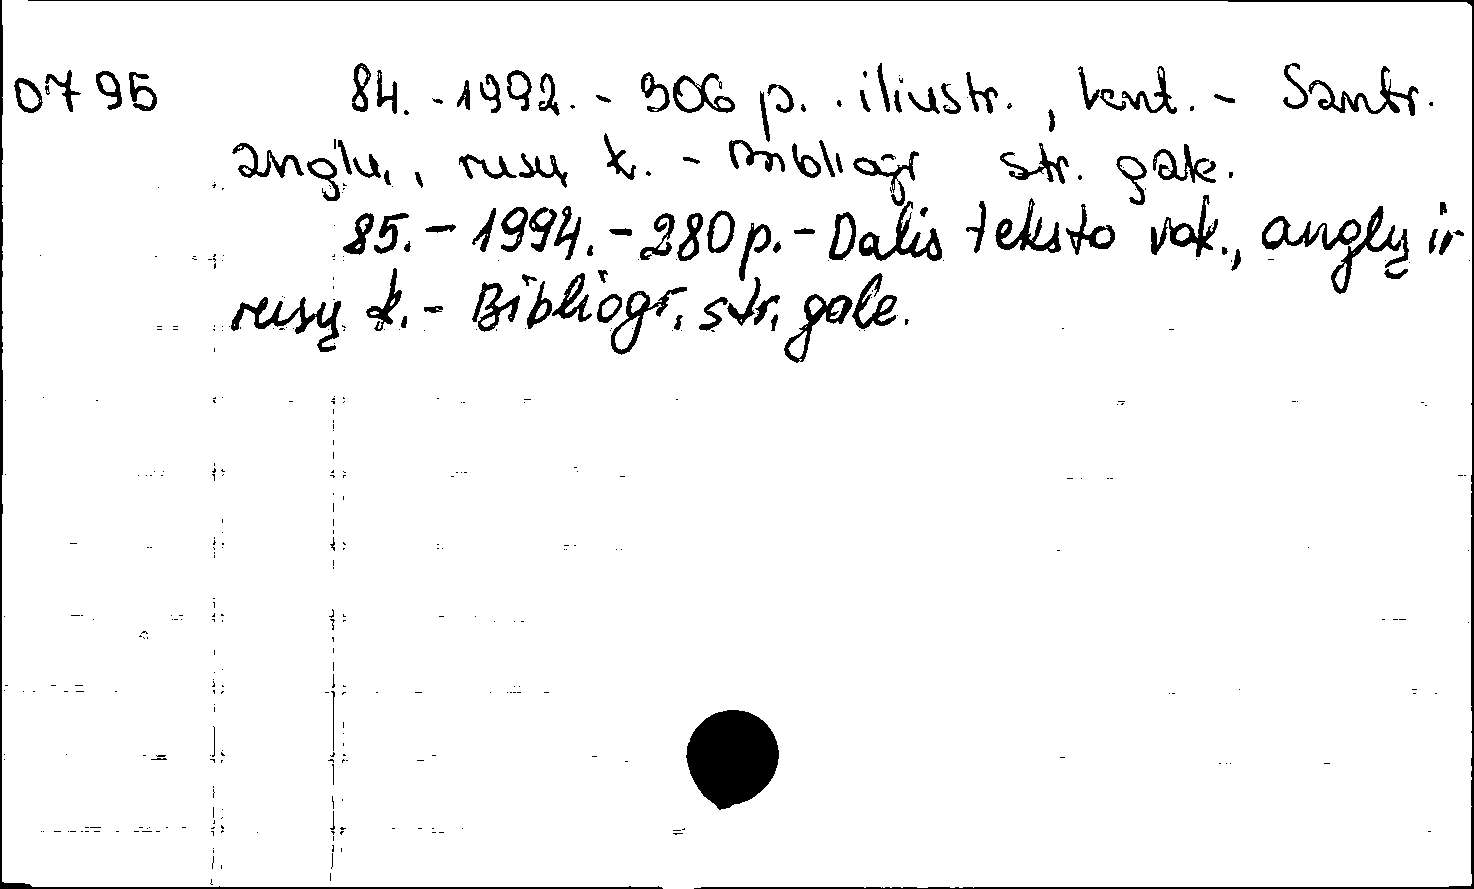 0795 84. - 1992. - 306 p. . iliustr. , lent. - Santr.
anglų, rusų k. - Bibliogr str. gale.
85. - 1994. - 280 p. - Dalis teksto vok., anglų ir
rusų k. - Bibliogr. str. gale.